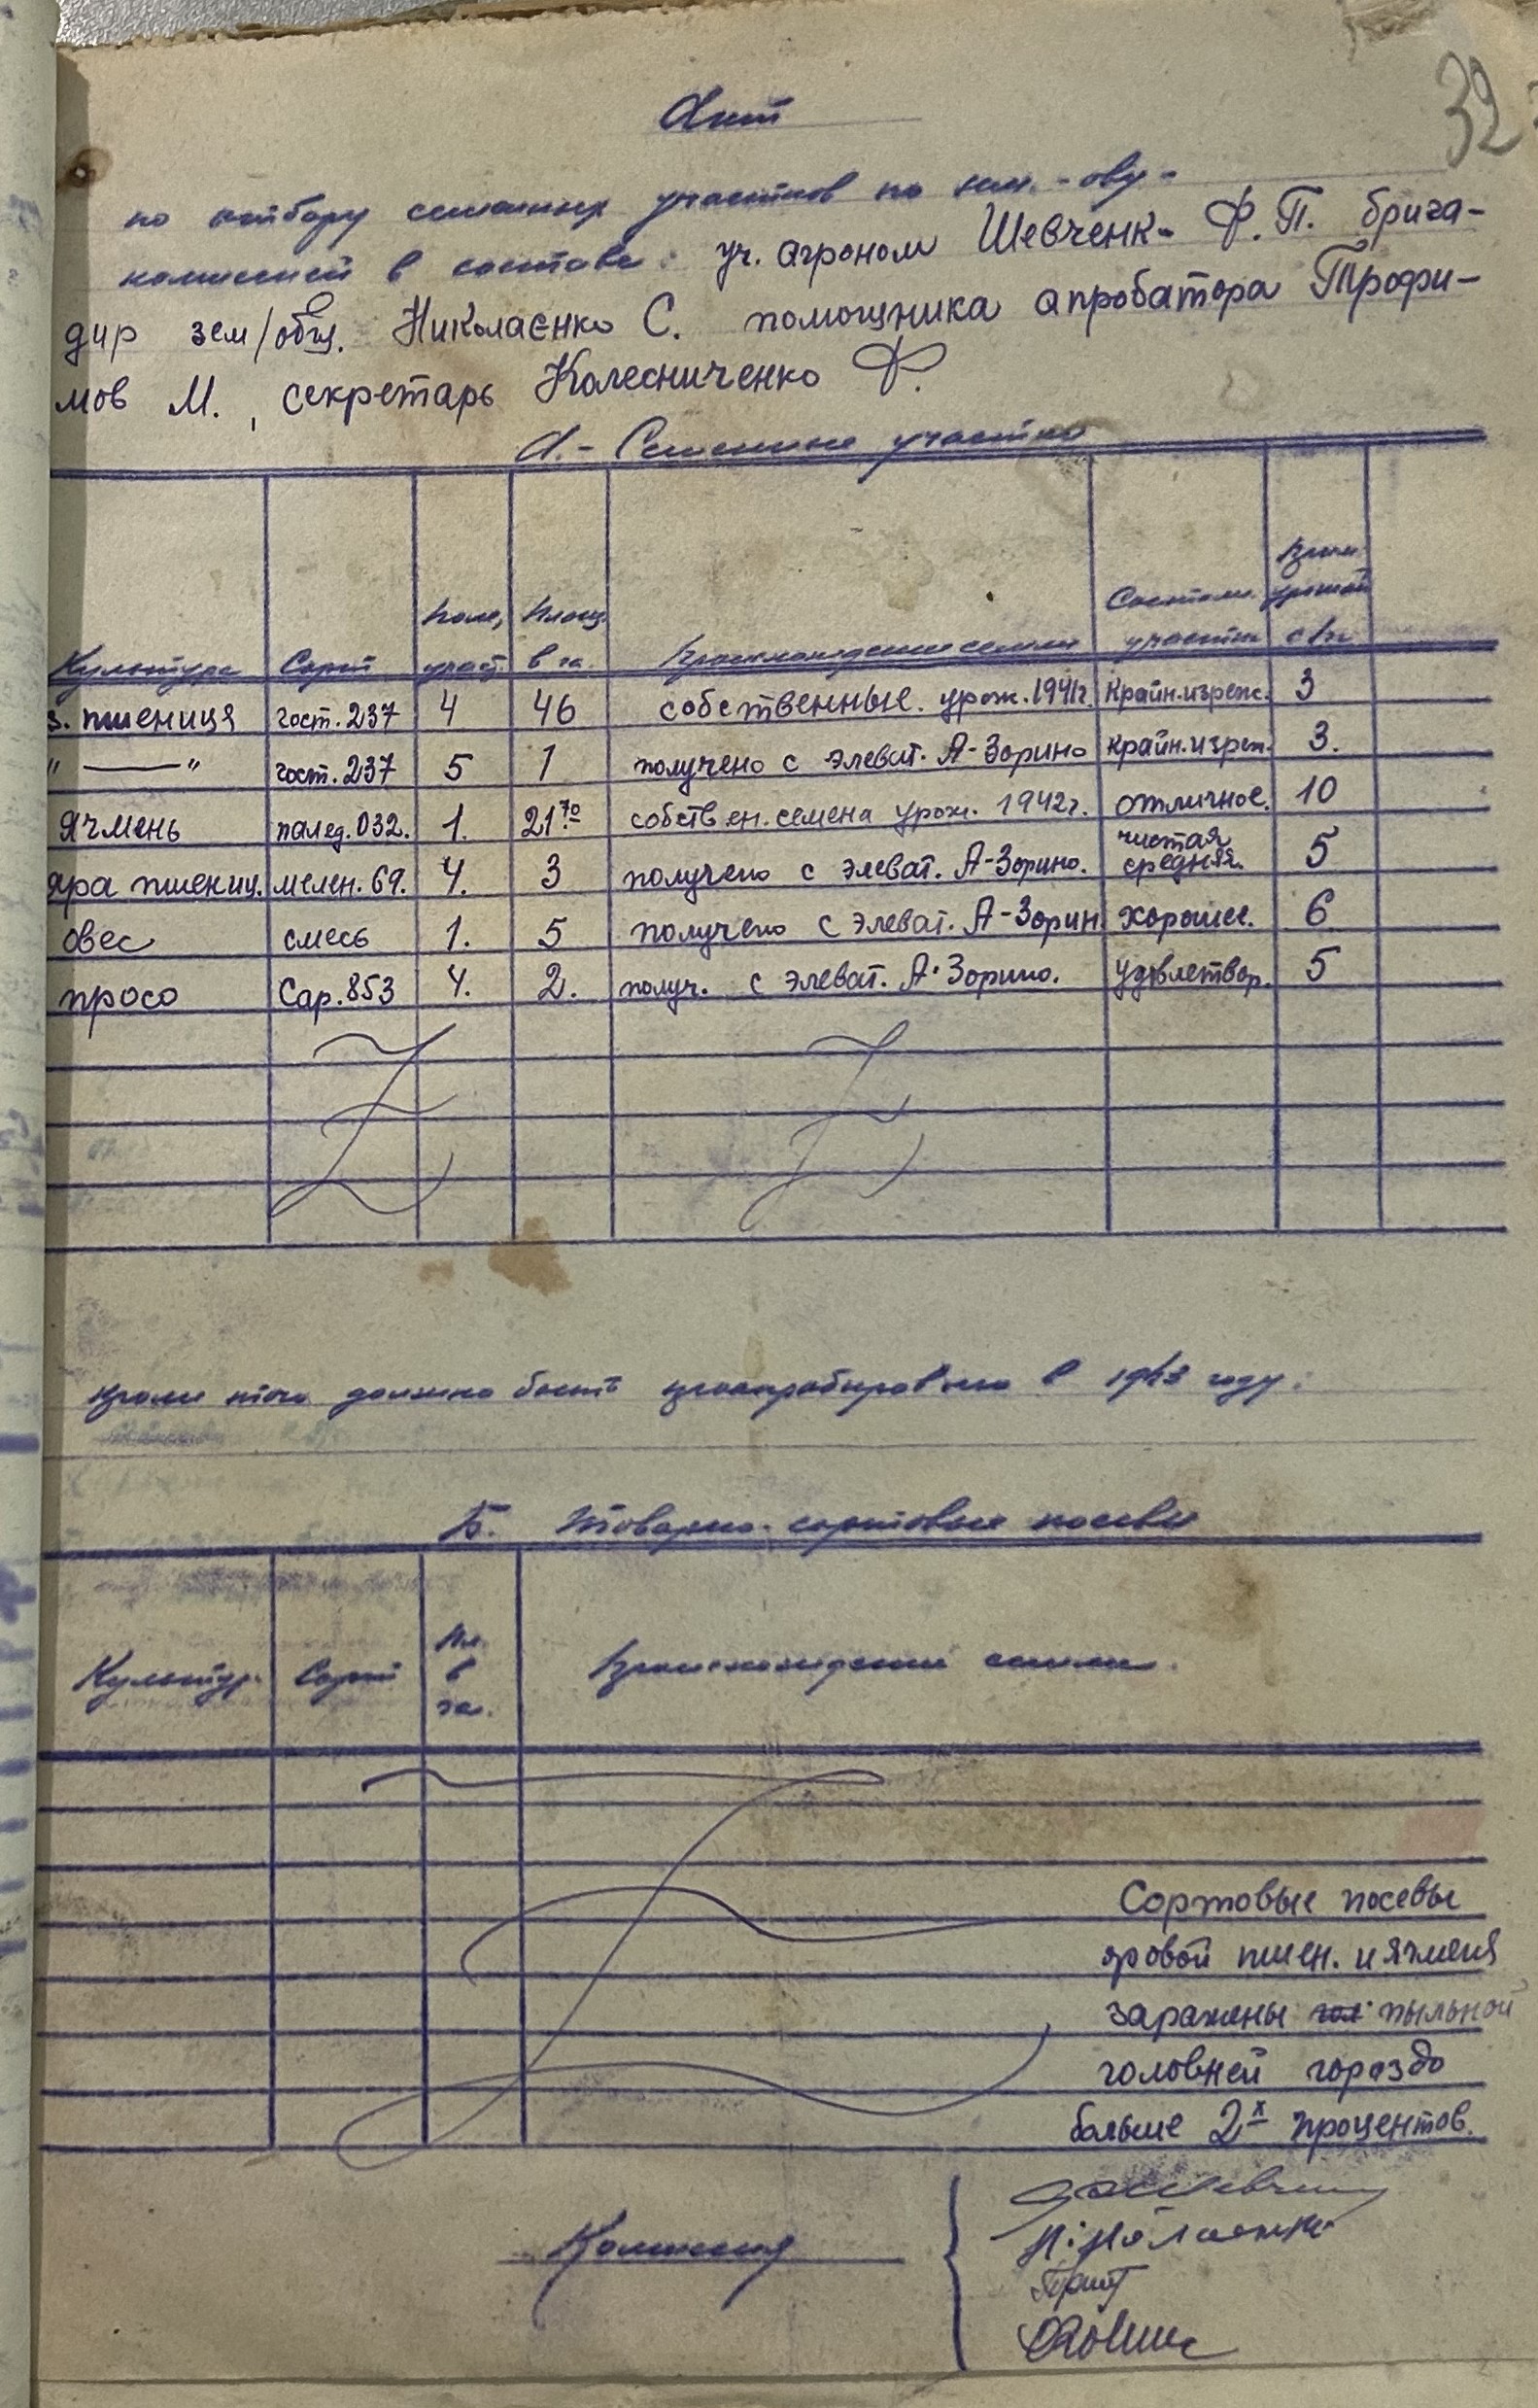 32
Акт
по отбору семенных участков по зем. - обу -
комиссией в составе: уч. агроном Шевченк- Ф.П. брига-
дир зем/общ. Николаєнко С. помощника апробатора Трофи-
мов М., секретарь Колесниченко Ф.
А. - Семенные участки
Культура | Сорт | Поле, участ. | Площ. в га. | Происхождение семян | Состоян. участка | урожай с 1 га
з. пшениця | гост. 237 | 4 | 46 | собственные. урож. 1941г. | Крайн. изреж. | 3
" —— " | гост. 237 | 5 | 1 | получено с элеват. А-Зорино | крайн. изреж. | 3.
Ячмень | палед. 032. | 1. | 21 70 | собствен. семена урож. 1942г. | отличное. | 10
яра пшениц. | мелен. 69. | 4. | 3 | получено с элеват. А-Зорино. | чистая средняя. | 5
овес | смесь | 1. | 5 | получено с элеват. А-Зорин | хорошее. | 6
просо | Сар. 853 | 4. | 2. | получ. с элеват. А-Зорино. | удовлетвор. | 5
Кроме того должно быть заапробировано в 1943 году:
Б. Товарно-сортовые посевы
Культур. | Сорт | Пл. в га. | Происхождения семян.
Сортовые посевы
яровой пшен. и ячменя
заражены пыльной
головней гораздо
больше 2х процентов.
Комиссия